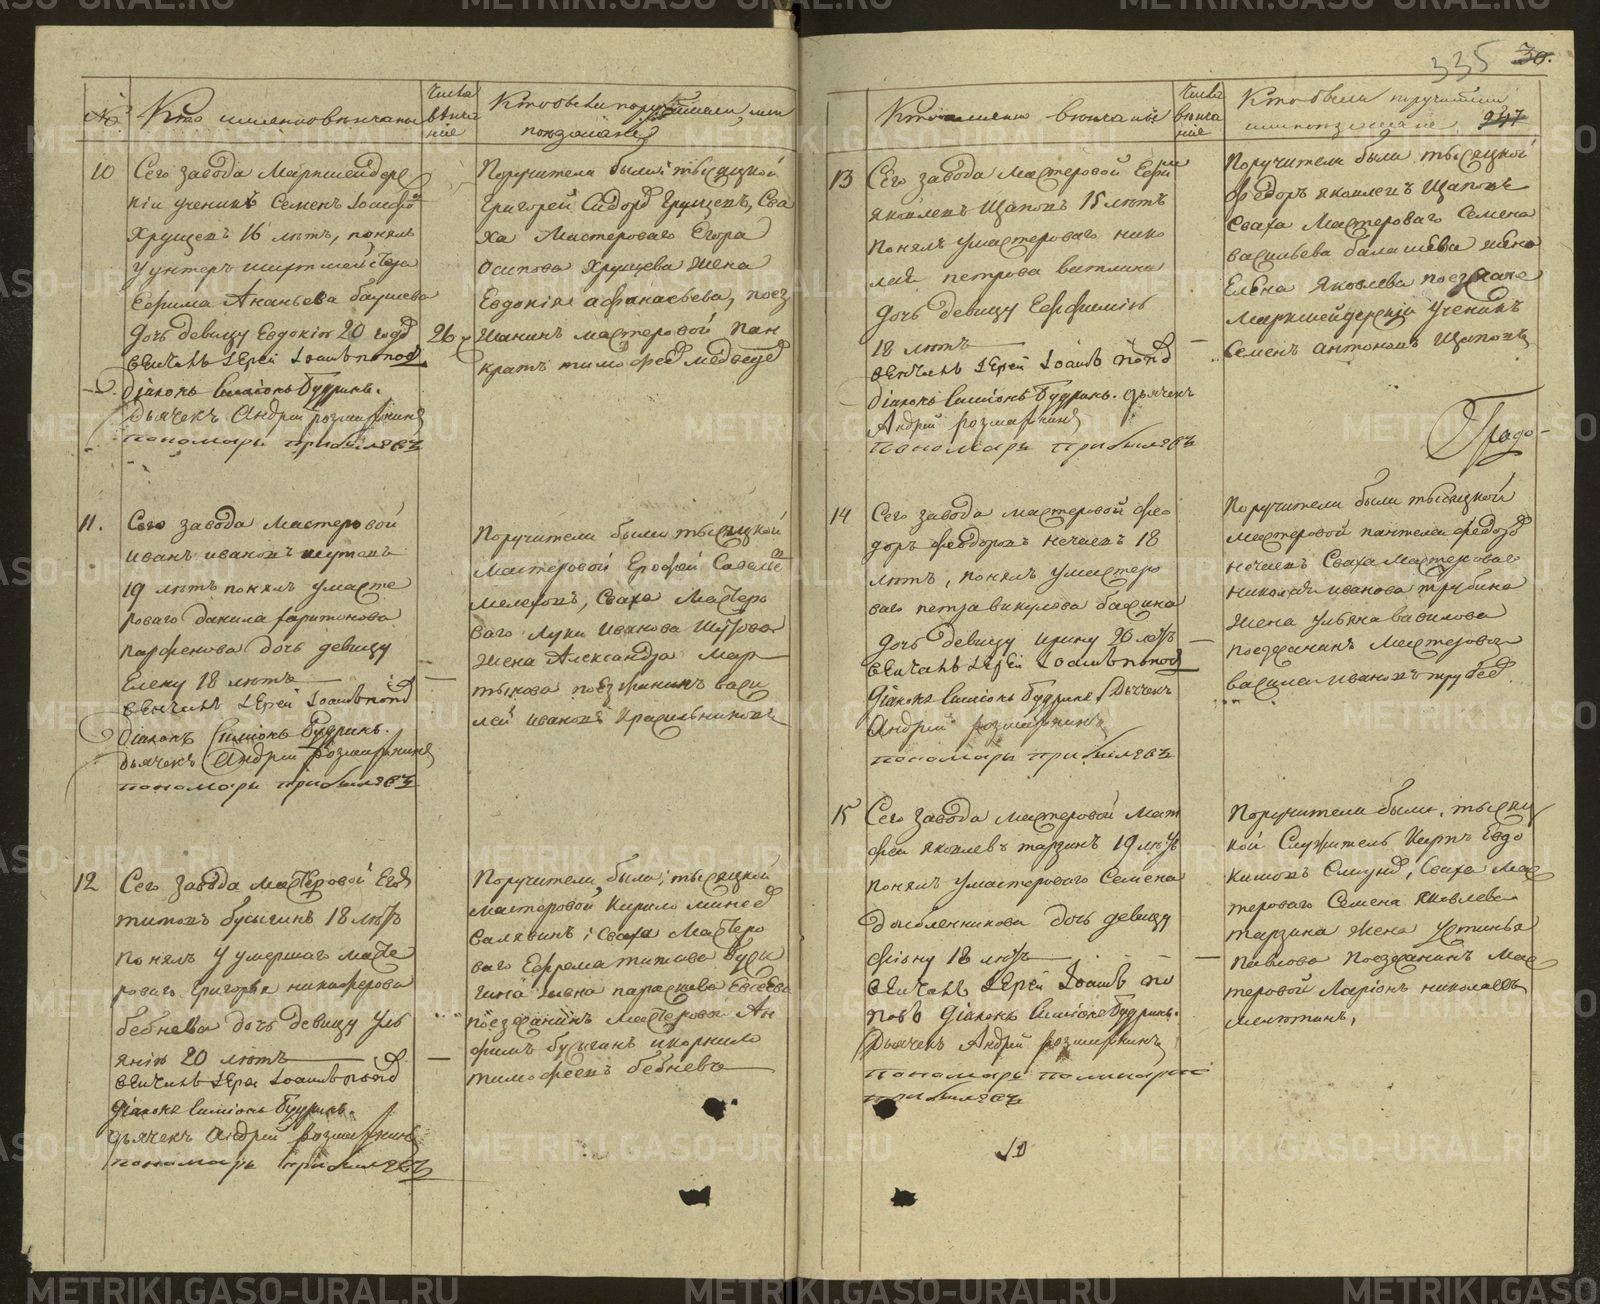 №
Кто имянно венчаны
Числа
венча
ние
Кто были поручители, или
поезжане
10
Сего завода Маркшейдерс
кiи ученикъ Семенъ Iосифо
Хрущевъ 16 летъ, понялъ
Ефима Ананьева
дочь девицу Евдокiю 20 годъ
венчалъ Iерей Iоаннъ поповъ
Дiаконъ Симiонъ Будринъ.
Дьячекъ Андрей розмарькинъ
пономарь прибылевъ
26
Поручители были: тысяцкой
Григорей Сидоръ Хрущевъ, Сва
ха Мастероваго Егора
Осипова Хрущева жена
Евдокiя афанасьева, поез
жанинъ мастеровой пан
кратъ тимофеевъ медведевъ
11.
Сего завода Мастеровой
иванъ ивановъ шутовъ
19 летъ понялъ умасте
роваго данила харитонова
парфенова дочь девицу
Елену 18 летъ
венчалъ Iерей Iоаннъ поповъ
Дiаконъ Симiонъ Будринъ.
дьячекъ Андрей розмарькинъ
пономарь прибылевъ
Поручители были тысяцкой
мастеровой Ерофей Савелье
мелеховъ, Сваха Мастеро
ваго Луки Иванова Шутова
жена Александра Мар
тынова поезжанинъ васи
лей ивановъ Красильниковъ
12
Сего завода мастеровой Егоръ
титовъ бусыгинъ 18 летъ
понялъ у умершаго масте
роваго григорья никифорова
бебнева дочь девицу уль
янiю 20 летъ
венчалъ Iерей Iоаннъ поповъ
Дiаконъ Симiонъ Будринъ.
дьячекъ Андрей розмарькинъ
пономарь прибылевъ
Поручители были; тысяцкой
мастеровой Кирило
Сваха Мастеро
ваго Ефрема титова Бусы
гина жена парасковья Евсеева
поезжанинъ мастеровой
бусыгинъ икорнило
тимофеевъ бебневъ
335 30.
Кто имянно венчаны
Числа
венча
ние
Кто были поручители
или поезжане 247
13
Сего завода мастеровой
яковлевъ Щаповъ 15 летъ
понялъ умастероваго нико
лая петрова ваткина
дочь девицу Евфимiю
18 летъ
венчалъ Iерей Iоаннъ поповъ
Дiаконъ Симiонъ Будринъ. дьячекъ
Андрей розмарькинъ
пономарь прибылевъ
Поручители были тысяцкой
федоръ яковлевъ Щаповъ
Сваха Мастероваго Семена
васильева балашева жена
Елена Яковлева поезжане
маркшейдерскiй Ученикъ
Семенъ антоновъ Щаповъ
14
Сего завода мастеровой фео
доръ феодоровъ нечаевъ 18
летъ, понялъ умастеро
ваго петра викулова басина
дочь девицу ирину 20 летъ
венчалъ Iерей Iоаннъ поповъ
Дiаконъ Симiонъ Будринъ Дьячекъ
Андрей розмарькинъ
пономарь прибылевъ
Поручители были тысяцкой
мастеровой пантелей федоръ
нечаевъ Сваха мастероваго
николая иванова трубина
жена ульяна вавилова
поезжанинъ мастеровой
василей ивановъ
15
Сего завода мастеровой мат
фей яковлевъ тарзинъ 19 летъ
понялъ умастероваго Семена
дочь девицу
фiону 18 летъ
венчалъ Iерей Iоаннъ по
повъ Дiаконъ Симiонъ Будринъ.
Дьячекъ Андрей розмарькинъ
пономарь поликарпъ
прибылевъ
Поручители были. тысяц
кой Служитель Карпъ Евдо
кимовъ Сваха Мас
тероваго Семена Яковлева
тарзина жена Устинья
павлова Поезжанинъ Мас
теровой Ларiонъ николаевъ